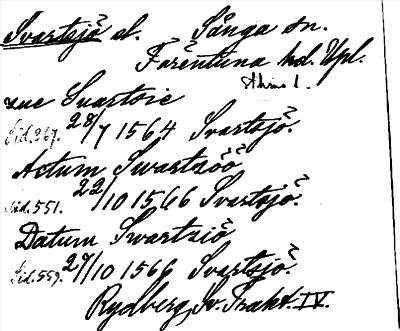 Svartsjö sl. Sånga sn.
Färentuna hd. Upl.
Sthlms l.
xue Suartsie
Sid. 267. 28/7 1564 Svartsjö.
Actum Swartzöö
Sid. 551. 22/10 1566 Svartsjö.
Datum Swartziö
Sid. 559. 27/10 1566 Svartsjö.
Rydberg, Sv. Trakt. IV.